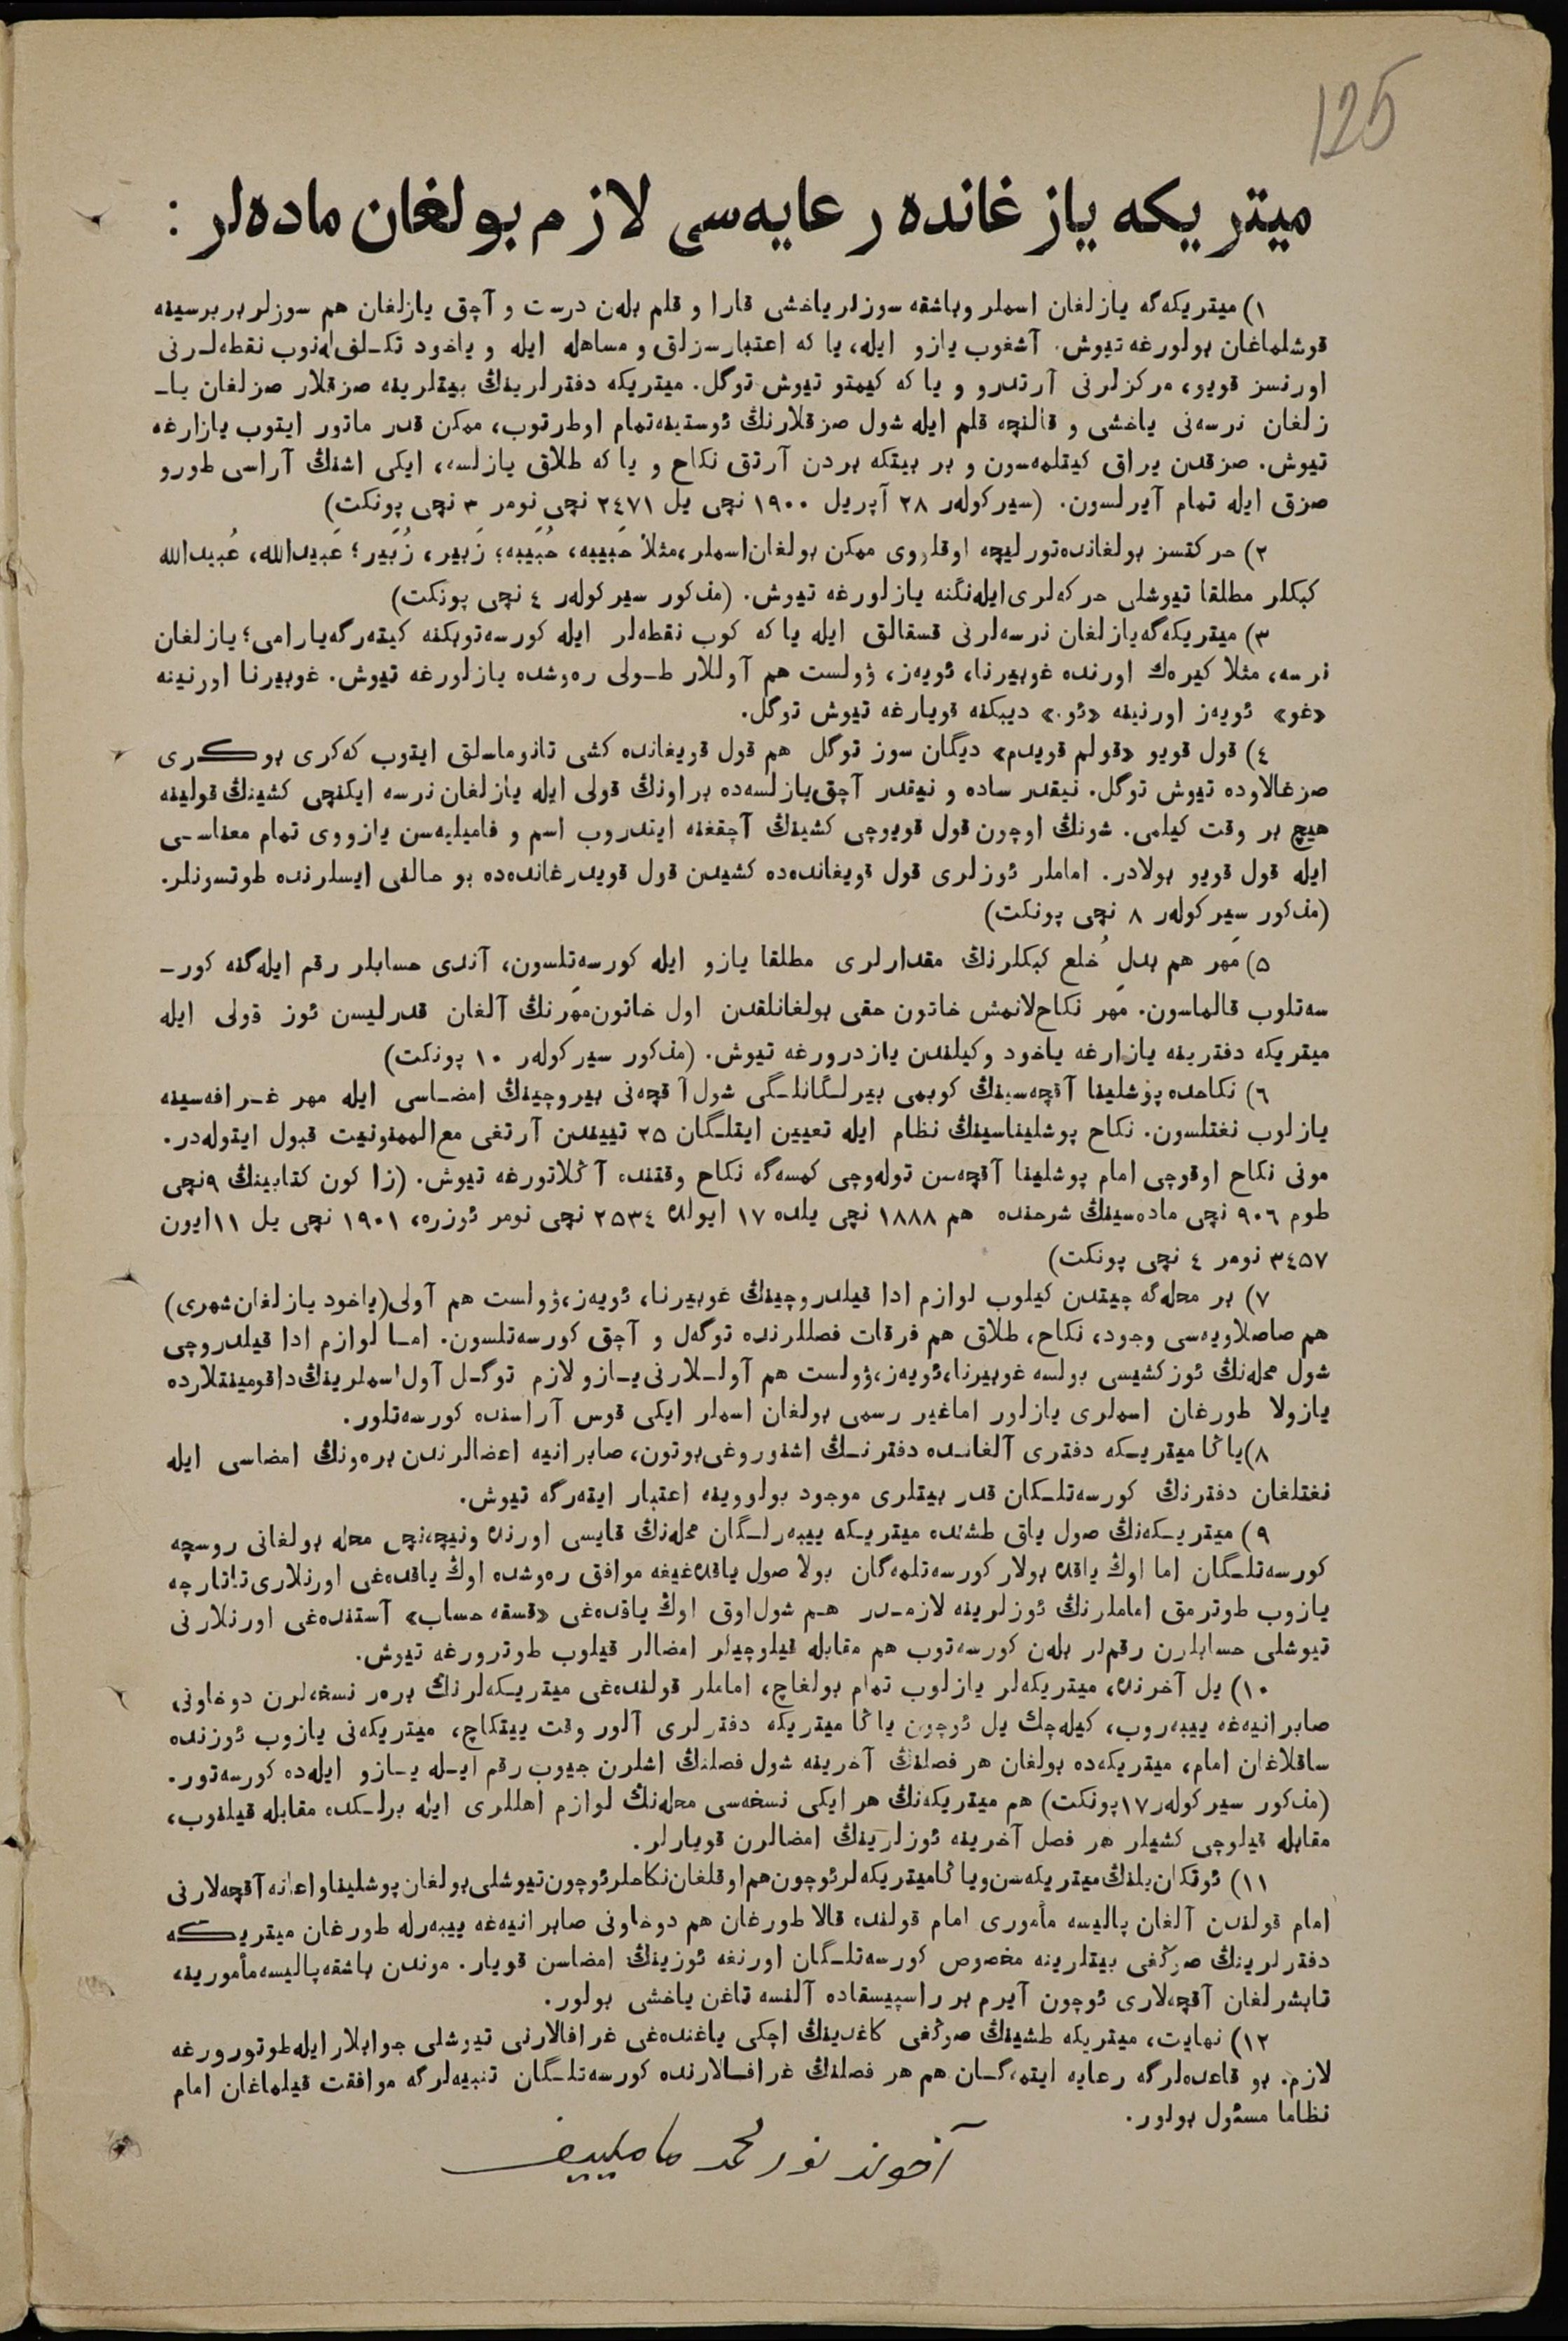 125
میتریكه یازغانده رعایه‌سی لازم بولغان ماده‌لر :
١) میتریكه‌گه یازلغان اسملر وباشقه سوزلر یاخشی قارا و قلم بله‌ن درست و آچق یازلغان هم سوزلر بربرسینه
قوشلماغان بولورغه تیوش. آشغوب یازو ایله، یا كه اعتبارسزلق و مساهله ایله و یاخود تكـلفله‌نوب نقطه‌لـرنی
اورنسز قویو، مركزلرنی آرتدرو و یا كه كیمتو تیوش توگل. میتریكه دفترلرینڭ بیتلرینه صزقلار صزلغان یاـ
زلغان نرسه‌نی یاخشی و قالنچه قلم ایله شول صزقلارنڭ ئوستینه‌تمام اوطرتوب، ممكن قدر ماتور ایتوب یازارغه
تیوش. صزقدن یراق كیتلمه‌سون و بر بیتكه بردن آرتق نكاح و یا كه طلاق یازلسه، ایكی اشنڭ آراسی طورو
صزق ایله تمام آیرلسون. (سیركوله‌ر ٢٨ آپریل ١٩٠٠ نچی یل ٢٤٧١ نچی نومر ٣ نچی پونكت)
٢) حركتسز بولغانده‌تورلیچه اوقلووی ممكن بولغان‌اسملر،مثلاً حَبیبه، حُبَیبه؛ زَبیر، زُبَیر؛ عَبیدالله، عُبیدالله
كبكلر مطلقا تیوشلی حركه‌لری‌ایله‌نگنه یازلورغه تیوش. (مذكور سیركوله‌ر ٤ نچی پونكت)
٣) میتریكه‌گه‌یازلغان نرسه‌لرنی قسقالق ایله یا كه كوب نقطه‌لر ایله كورسه‌توبكنه كیته‌رگه‌یارامی؛ یازلغان
نرسه، مثلا كیره‌ك اورنده غوبیرنا، ئویه‌ز، ۋولست هم آوللار طـولی ره‌وشده یازلورغه تیوش. غوبیرنا اورنینه
«غو» ئویه‌ز اورنینه «ئو.» دیبكنه قویارغه تیوش توگل.
٤) قول قویو «قولم قویدم» دیگان سوز توگل هم قول قویغانده كشی تانوماسـلق ایتوب كه‌كری بوكـری
صزغالاوده تیوش توگل. نیقدر ساده و نیقدر آچق‌یازلسه‌ده براونڭ قولی ایله یازلغان نرسه ایكنچی كشینڭ قولینه
هیچ بر وقت كیلمی. شونڭ اوچون قول قویوچی كشینڭ آچقغنه ایتدروب اسم و فامیلیه‌سن یازووی تمام معناسـی
ایله قول قویو بولادر. اماملر ئوزلری قول قویغانده‌ده كشیدن قول قویدرغانده‌ده بو حالنی ایسلرنده طوتسونلر.
(مذكور سیركوله‌ر ٨ نچی پونكت)
٥) مَهر هم بدلِ خُلع كبكلرنڭ مقدارلری مطلقا یازو ایله كورسه‌تلسون، آندی حسابلر رقم ایله‌گنه كورـ
سه‌تلوب قالماسون. مَهر نكاح‌لانمش خاتون حقی بولغانلقدن اول خاتون‌مهرنڭ آلغان قدرلیسن ئوز قولی ایله
میتریكه دفترینه یازارغه یاخود وكیلندن یازدرورغه تیوش. (مذكور سیركوله‌ر ١٠ پونكت)
٦) نكاحده پوشلینا آقچه‌سینڭ كوبمی بیرلـگانلـگی شول آقچه‌نی بیروچینڭ امضـاسی ایله مهر غـرافه‌سینه
یازلوب نغتلسون. نكاح پوشلیناسینڭ نظام ایله تعیین ایتلـگان ٢٥ تییندن آرتغی مع‌الممنونیت قبول ایتوله‌در.
مونی نكاح اوقوچی امام پوشلینا آقچه‌سن توله‌وچی كمسه‌گه نكاح وقتنده آڭلاتورغه تیوش. (زاكون كتابینڭ ٩نچی
طوم ٩٠٦ نچی ماده‌سینڭ شرحنده هم ١٨٨٨ نچی یلده ١٧ ایولده ٢٥٣٤ نچی نومر ئوزره، ١٩٠١ نچی یل ١١ایون
٣٤٥٧ نومر ٤ نچی پونكت)
٧) بر محله‌گه چیتدن كیلوب لوازم ادا قیلدروچینڭ غوبیرنا، ئویه‌ز،ۋولست هم آولی(یاخود یازلغان‌شهری)
هم صاصلاویه‌سی وجود، نكاح، طلاق هم فرقات فصللرنده توگه‌ل و آچق كورسه‌تلسون. امـا لوازم ادا قیلدروچی
شول محله‌نڭ ئوزكشیسی بولسه غوبیرنا،ئویه‌ز،ۋولست هم آولـلارنی‌یـازو لازم توگـل آول‌اسملرینڭ‌داقومینتلارده
یازولا طورغان اسملری یازلور اماغیر رسمی بولغان اسملر ایكی قوس آراسنده كورسه‌تلور.
٨)یاڭا میتریـكه دفتری آلغانـده دفترنـڭ اشنوروغی‌بوتون، صابرانیه اعضالرندن بره‌ونڭ امضاسی ایله
نغتلغان دفترنڭ كورسه‌تلـكان قدر بیتلری موجود بولووینه اعتبار ایته‌رگه تیوش.
٩) میتریـكه‌نڭ صول یاق طشنده میتریـكه ییبه‌رلـگان محله‌نڭ قایسی اورنده ونیچه‌نچی محله بولغانی روسچه
كورسه‌تلـگان اما اوڭ یاقده بولار كورسه‌تلمه‌گان بولا صول یاقده‌غیغه موافق ره‌وشده اوڭ یاقده‌غی اورنلاری‌تاتارچه
یازوب طوترمق اماملرنڭ ئوزلرینه لازمـدر هـم شول‌اوق اوڭ یاقده‌غی «قسقه حساب» آستنده‌غی اورنلارنی
تیوشلی حسابلرن رقم‌لر بله‌ن كورسه‌توب هم مقابله قیلوچیلر امضالر قیلوب طوترورغه تیوش.
١٠) یل آخرنده، میتریكه‌لر یازلوب تمام بولغاچ، اماملر قولنده‌غی میتریـكه‌لرنڭ بره‌ر نسخه‌لرن دوخاونی
صابرانیه‌غه ییبه‌روب، كیله‌چك یل ئوچون یاڭا میتریكه دفترلری آلور وقت ییتكاچ، میتریكه‌نی یازوب ئوزنده
ساقلاغان امام، میتریكه‌ده بولغان هر فصلنڭ آخرینه شول فصلنڭ اشلرن جیوب رقم ایـله یـازو ایله‌ده كورسه‌تور.
(مذكور سیركوله‌ر١٧پونكت) هم میتریكه‌نڭ هر ایكی نسخه‌سی محله‌نڭ لوازم اهللری ایله برلـكده مقابله قیلنوب،
مقابله قیلوچی كشیلر هر فصل آخرینه ئوزلرینڭ امضالرن قویارلر.
١١) ئوتكان‌یلنڭ‌میتریكه‌سن‌ویاڭامیتریكه‌لرئوچون‌هم‌اوقلغان‌نكاحلرئوچون‌تیوشلی‌بولغان‌پوشلیناواعانه‌آقچه‌لارنی
امام قولندن آلغان پالیسه مأموری امام قولنده قالا طورغان هم دوخاونی صابرانیه‌غه ییبه‌رله طورغان میتریـكه
دفترلرینڭ صوڭغی بیتلرینه مخصوص كورسه‌تلـگان اورنغه ئوزینڭ امضاسن قویار. موندن باشقه‌پالیسه‌مأمورینه
تابشرلغان آقچه‌لاری ئوچون آیرم بر راسپیسقاده آلنسه تاغن یاخشی بولور.
١٢) نهایت، میتریكه طشینڭ صوڭغی كاغدینڭ اچكی یاغنده‌غی غرافالارنی تیوشلی جوابلار ایله‌طوتورورغه
لازم. بو قاعده‌لرگه رعایه ایتمه‌گـان هم هر فصلنڭ غرافـالارنده كورسه‌تلـگان تنبیه‌لرگه موافقت قیلماغان امام
نظاما مسئول بولور.
آخوند نورمحمد ماملییف